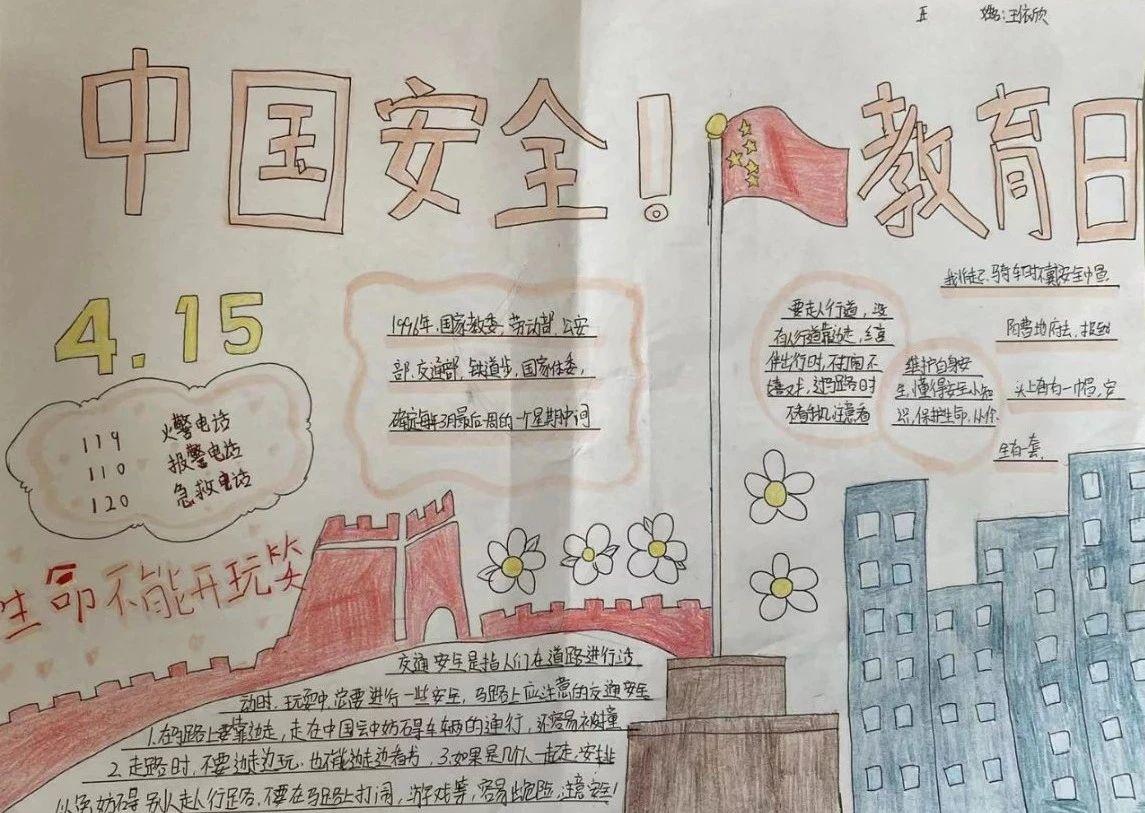 王依欣
中国安全！教育日
4.15
119 火警电话
110 报警电话
120 急救电话
生命不能开玩笑
1996年，国家教委，劳动部，公安
部，交通部，铁道步，国家体委，
确定每年3月最后一周的一个星期中间
要走人行道，没
有人行道靠边走，结直
伴出行时，不打闹不
嬉戏，过马路时
不看手机注意看
维护自身安
全，懂得安全小知
识，保护生命，从你
骑车时不戴安全帽
头上再有一帽，安
全有一套，
交通安全是指人们在道路进行活
动时，玩耍中，要进行一些安全，马路上应注意的交通安全
1.在马路上要靠边走，走在中国会中妨碍车辆的通行，还容易被撞
2.走路时，不要边走边玩，也不能边走边看书，3.如果是几个人一起走，
妨碍别人走人行道路，不要在马路上打闹，游戏等，容易出危险，注意安全！